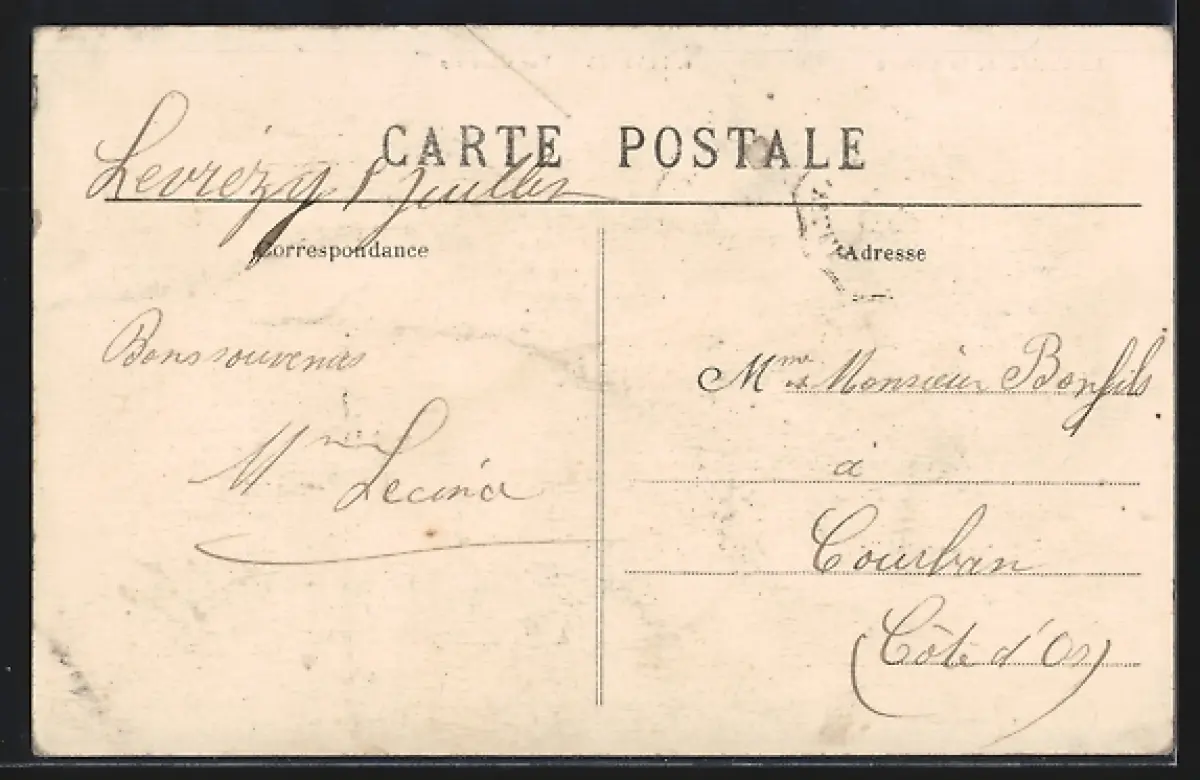 CARTE POSTALE
Levrézy 1 Juillet
Correspondance
Bons souvenirs
Mme
Adresse
Mme et Monsieur Bonfils
à
Courban
(Côte d'Or)